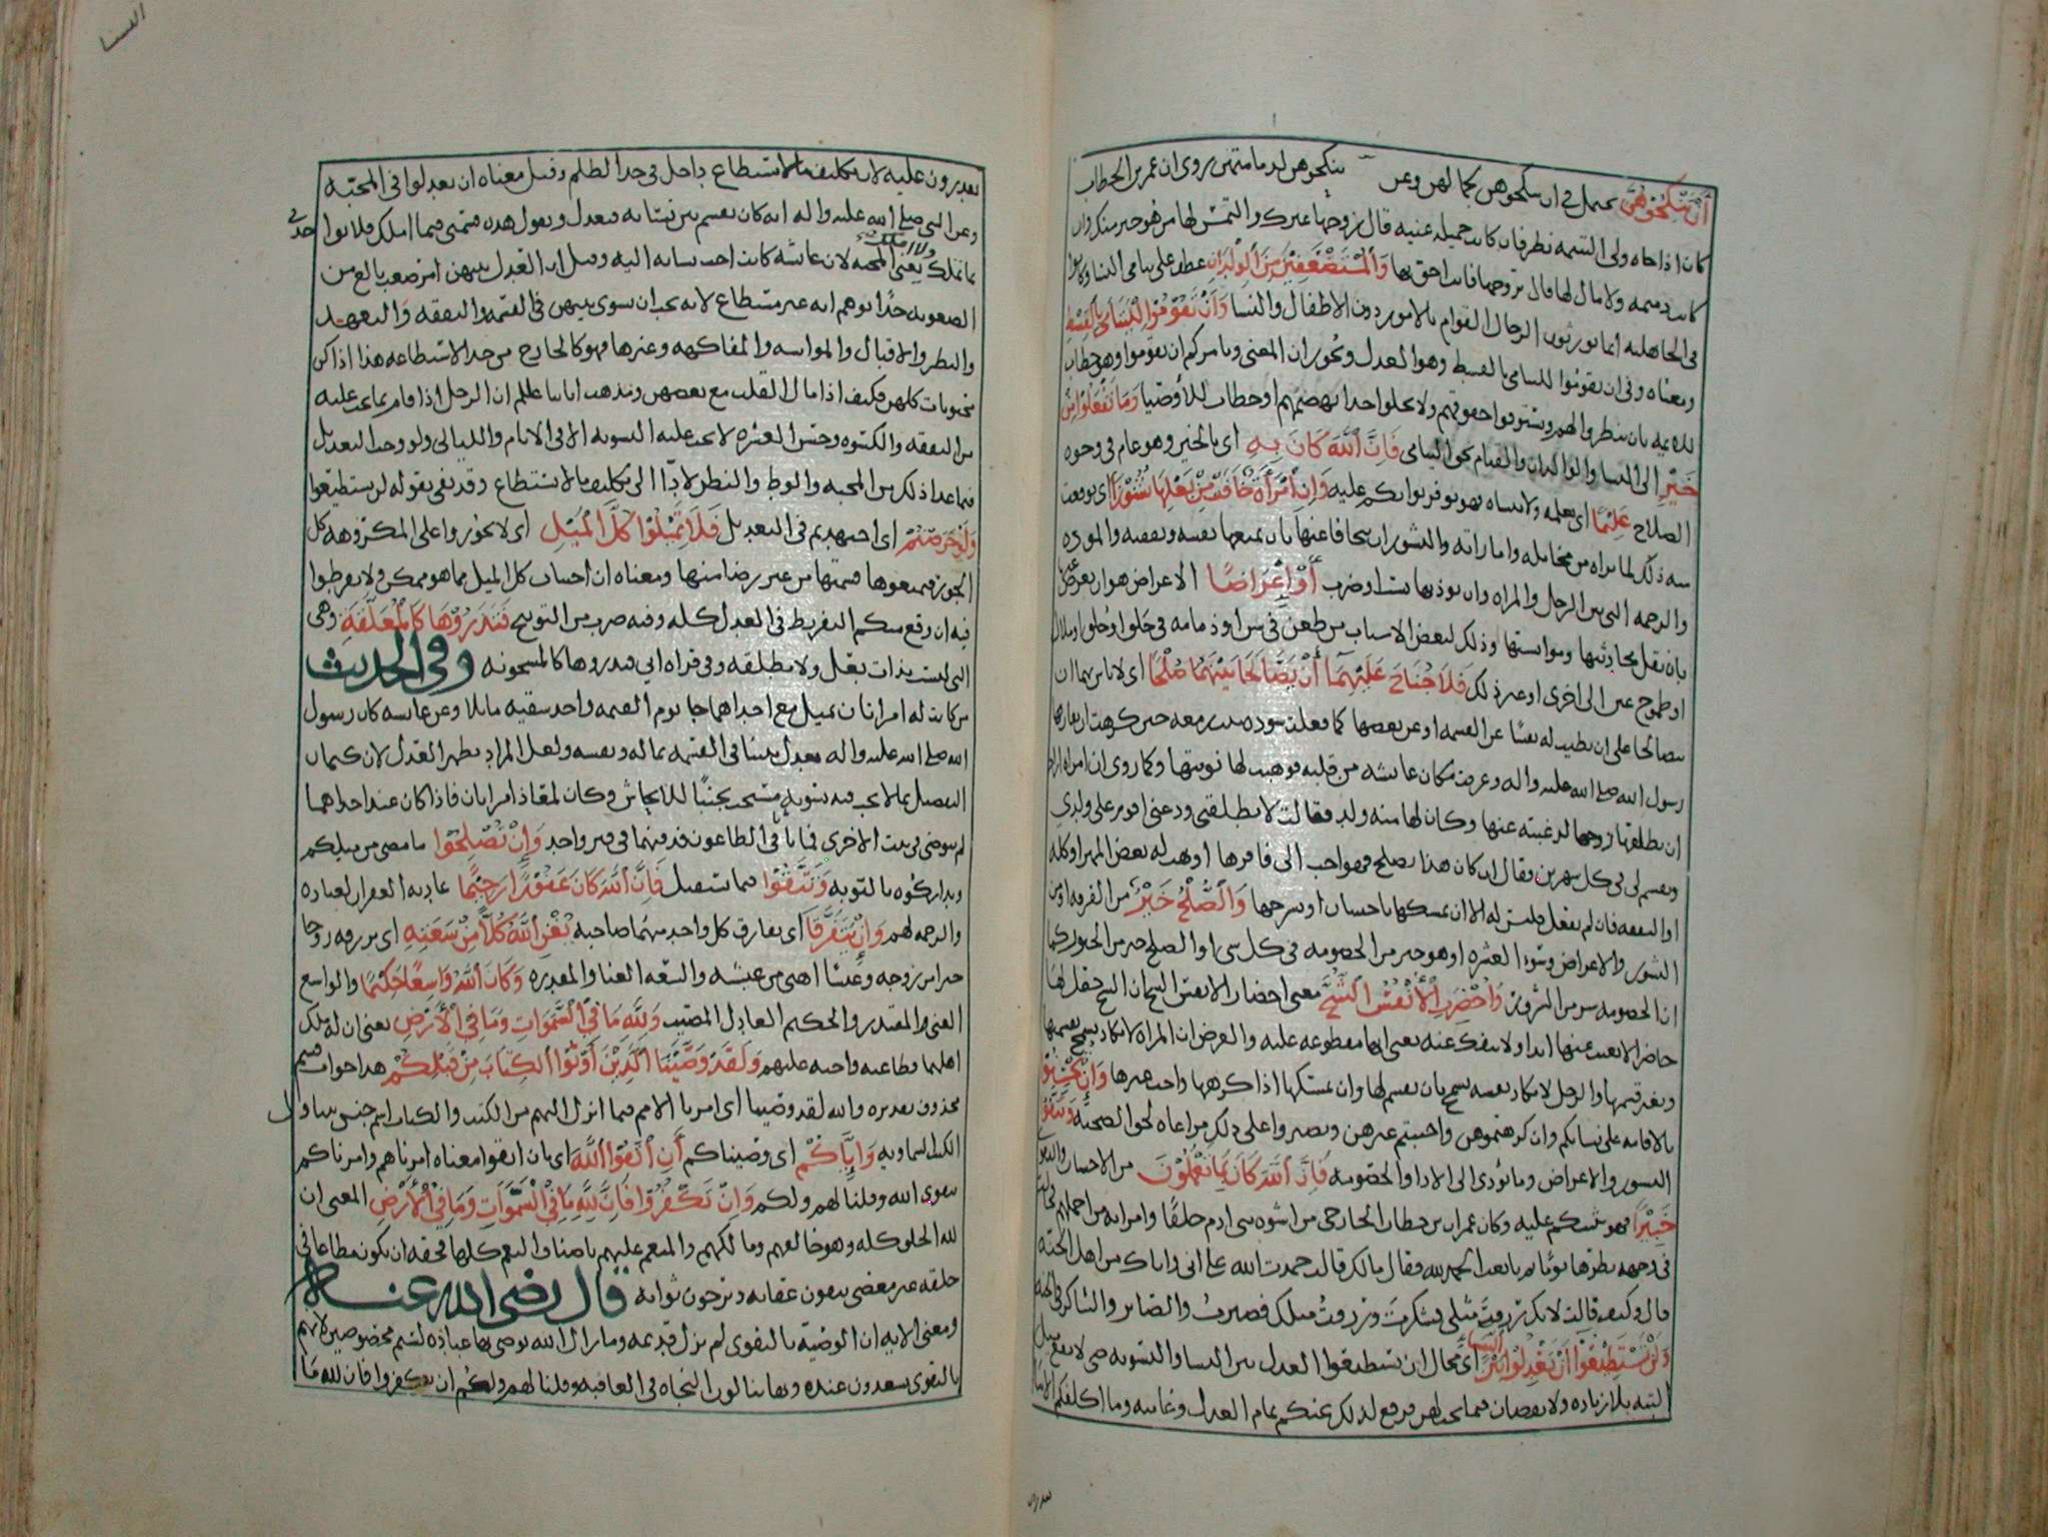 أن تنكحوهن يحتمل في ان تنكحوهن لجمالهن وعن ان تنكحوهن لدمامتهن روي ان عمر بن الخطاب
كان اذا جاه ولي اليتيمه نظر فان كانت جميله غنيه قال زوجها غيرك والتمس لها من هو خير منك وان
كانت دميمه ولا مال لها قال تزوجها فانت احق بها والمستضعفين من الولدان عطف على يتامى النسا وكانوا
في الجاهليه انما يورثون الرجال القوام بالامور دون الاطفال والنسا وأن تقوموا لليتامى بالقسط
ومعناه وفي ان تقوموا لليتامى بالقسط وهو العدل ويجوز ان المعنى ويامركم ان تقوموا وهو خطاب
للايمه بان ينظروا لهم ويستوفوا حقوقهم ولا يخلوا احدا يهضمهم او خطاب للأوصيا وما تفعلوا من
خير الى النسا والولدان والقيام بحق اليتامى فإن الله كان به اي بالخير وهو عام في وجوه
الصلاح عليما اي يعلمه ولا ينساه فهو يوفر ثوابكم عليه وإن امرأة خافت من بعلها نشوزا اي توقعت
منه ذلك لما تراه من مخايله واماراته والنشوز ان يتجافا عنها بان يمنعها نفسه ونفقته والموده
والرحمه التي بين الرجل والمراه وان يوذيها بسب او ضرب أو إعراضا الاعراض هو ان يعرض عنها
بان يقل محادثتها ومؤانستها وذلك لبعض الاسباب من طعن في سن او دمامه في خلق او خلق او ملال
او طموح عين الى اخرى او غير ذلك فلا جناح عليهما أن يصالحا بينهما صلحا اي لا باس بهما ان
يتصالحا على ان تطيب له نفسا عن القسمه او عن بعضها كما فعلت سوده بنت زمعه حين كرهت ان يفارقها
رسول الله صلى الله عليه واله وعرفت مكان عايشه من قلبه فوهبت لها نوبتها وكما روي ان امراة اراد
ان يطلقها زوجها لرغبته عنها وكان لها منه ولد فقالت لا تطلقني ودعني اقوم على ولدي
وتقسم لي في كل شهرين فقال ان كان هذا يصلح فهو احب الي فاقرها او تهب له بعض المهر او كله
او النفقه فان لم تفعل فليس له الا ان يمسكها باحسان او يسرحها والصلح خير من الفرقه او من
النشوز والاعراض وسوء العشره او هو خير من الخصومه في كل شي او الصلح خير من الخيور كما
ان الخصومه شر من الشرور وأحضرت الأنفس الشح معنى احضار الانفس الشح ان الشح جعل لها
حاضرا لا يغيب عنها ابدا ولا ينفك عنه يعني انها مطبوعه عليه والغرض ان المراة لا تكاد تسمح بقسمها
وبغير قسمها والرجل لا تكاد نفسه تسمح بان يقسم لها وان يمسكها اذا كرهها واحب غيرها وإن تحسنوا
بالاقامه على نسايكم وان كرهتموهن واحببتم غيرهن وتصبروا على ذلك مراعاه لحق الصحبه وتتقوا
النشوز والاعراض وما يؤدي الى الاذا والخصومه فإن الله كان بما تعملون من الاحسان والتقوى
خبيرا فهو يثيبكم عليه وكان عمران بن حطان الخارجي من اشوه بني ادم خلقا وامراته من اجملهم فاجالت
في وجهه نظرها يوما ثم تابعت الحمد لله فقال مالك قالت حمدت الله على اني واياك من اهل الجنه
قال وكيف قالت لانك رزقت مثلي فشكرت ورزقت مثلك فصبرت والصابر والشاكر في الجنه
ولن تستطيعوا أن تعدلوا بين النساء أي محال ان تستطيعوا العدل بين النسا والتسويه حتى لا يقع ميل
البته بلا زياده ولا نقصان فيما يجب لهن فرفع لذلك عنكم تمام العدل وغايته وما اكلفكم الا ما
تقدرون
النسا
تقدرون عليه لان تكليف ما لا يستطاع داخل في حد الظلم وقيل معناه ان تعدلوا في المحبه
وعن النبي صلى الله عليه واله انه كان يقسم بين نسائه فيعدل ويقول هذه قسمتي فيما املك فلا تواخذني
بما تملك ولا املك يعني المحبه لان عايشه كانت احب نسايه اليه وقيل ان العدل بينهن امر صعب بالغ من
الصعوبه حدا يوهم انه غير مستطاع لانه يجب ان يسوي بينهن في القسمه والنفقه والتعهد
والنظر والاقبال والموانسه والمفاكهه وغيرها فهو كالخارج من حد الاستطاعه هذا اذا كن
محبوبات كلهن فكيف اذا مال القلب مع بعضهن ومذهب ايمتنا عللم ان الرجل اذا قام بما يجب عليه
من النفقه والكسوه وحسن العشره لا يجب عليه التسويه الا في الايام والليالي ولو وجب التعديل
فيما عدا ذلك من المحبه والوطء والنظر لادا الى تكليف ما لا يستطاع وقد نفى بقوله لن تستطيعوا
ولو حرصتم اي اجتهدتم في التعديل فلا تميلوا كل الميل اي لا تجوروا على المكروهه كل
الجور فتمنعوها قسمتها من غير رضا منها ومعناه ان اجتناب كل الميل مما هو ممكن ولا تفرطوا
فيه ان وقع منكم التفريط في العدل كله وفيه ضرب من التوبيخ فتذروها كالمعلقة وهي
التي ليست بذات بعل ولا مطلقه وفي قراه ابي فتذروها كالمسجونه وفي الحديث
من كانت له امراتان يميل مع احداهما جا يوم القيمه واحد شقيه مايلا وعن عايشه كان رسول
الله صلى الله عليه واله يعدل بيننا في القسمه بماله ونفسه ولعل المراد يظهر العدل لان كتمان
التفضيل بما لا يجب فيه تسويه مستحب تجنبا للايحاش وكان لمعاذ امراتان فاذا كان عند احداهما
لم يتوضى في بيت الاخرى فماتا في الطاعون فدفنهما في قبر واحد وإن تصلحوا ما مضى من ميلكم
وتداركوه بالتوبه وتتقوا فيما يستقبل فإن الله كان غفورا رحيما عادته الغفران لعباده
والرحمه لهم وإن يتفرقا أي يفارق كل واحد منهما صاحبه يغن الله كلا من سعته اي يرزقه زوجا
خيرا من زوجه وعيشا اهنى من عيشه والسعه الغنا والمقدره وكان الله واسعا حكيما والواسع
الغني المقتدر والحكيم العادل المصيب ولله ما في السموات وما في الأرض يعني ان له ملك
اهلهما وطاعته واجبه عليهم ولقد وصينا الذين أوتوا الكتاب من قبلكم هذا جواب قسم
محذوف تقديره والله لقد وصينا اي امرنا الامم فيما انزل اليهم من الكتب والكتاب اسم جنس يتناول
الكتب السماويه وإياكم اي وصيناكم أن اتقوا الله اي بان اتقوا معناه امرناهم وامرناكم
بتقوى الله وقلنا لهم ولكم وإن تكفروا فإن لله ما في السموات وما في الأرض المعنى ان
لله الخلق كله وهو خالقهم ومالكهم والمنعم عليهم باصناف النعم كلها فحقه ان يكون مطاعا في
خلقه غير معصي يتقون عقابه ويرجون ثوابه قال رضي الله عنه
ومعنى الايه ان الوصية بالتقوى لم تزل قديمه وما زال الله يوصي بها عباده لستم مخصوصين لانهم
بالتقوى يسعدون عنده وبها ينالون النجاه في العاقبه وقلنا لهم ولكم ان تكفروا فان لله ما